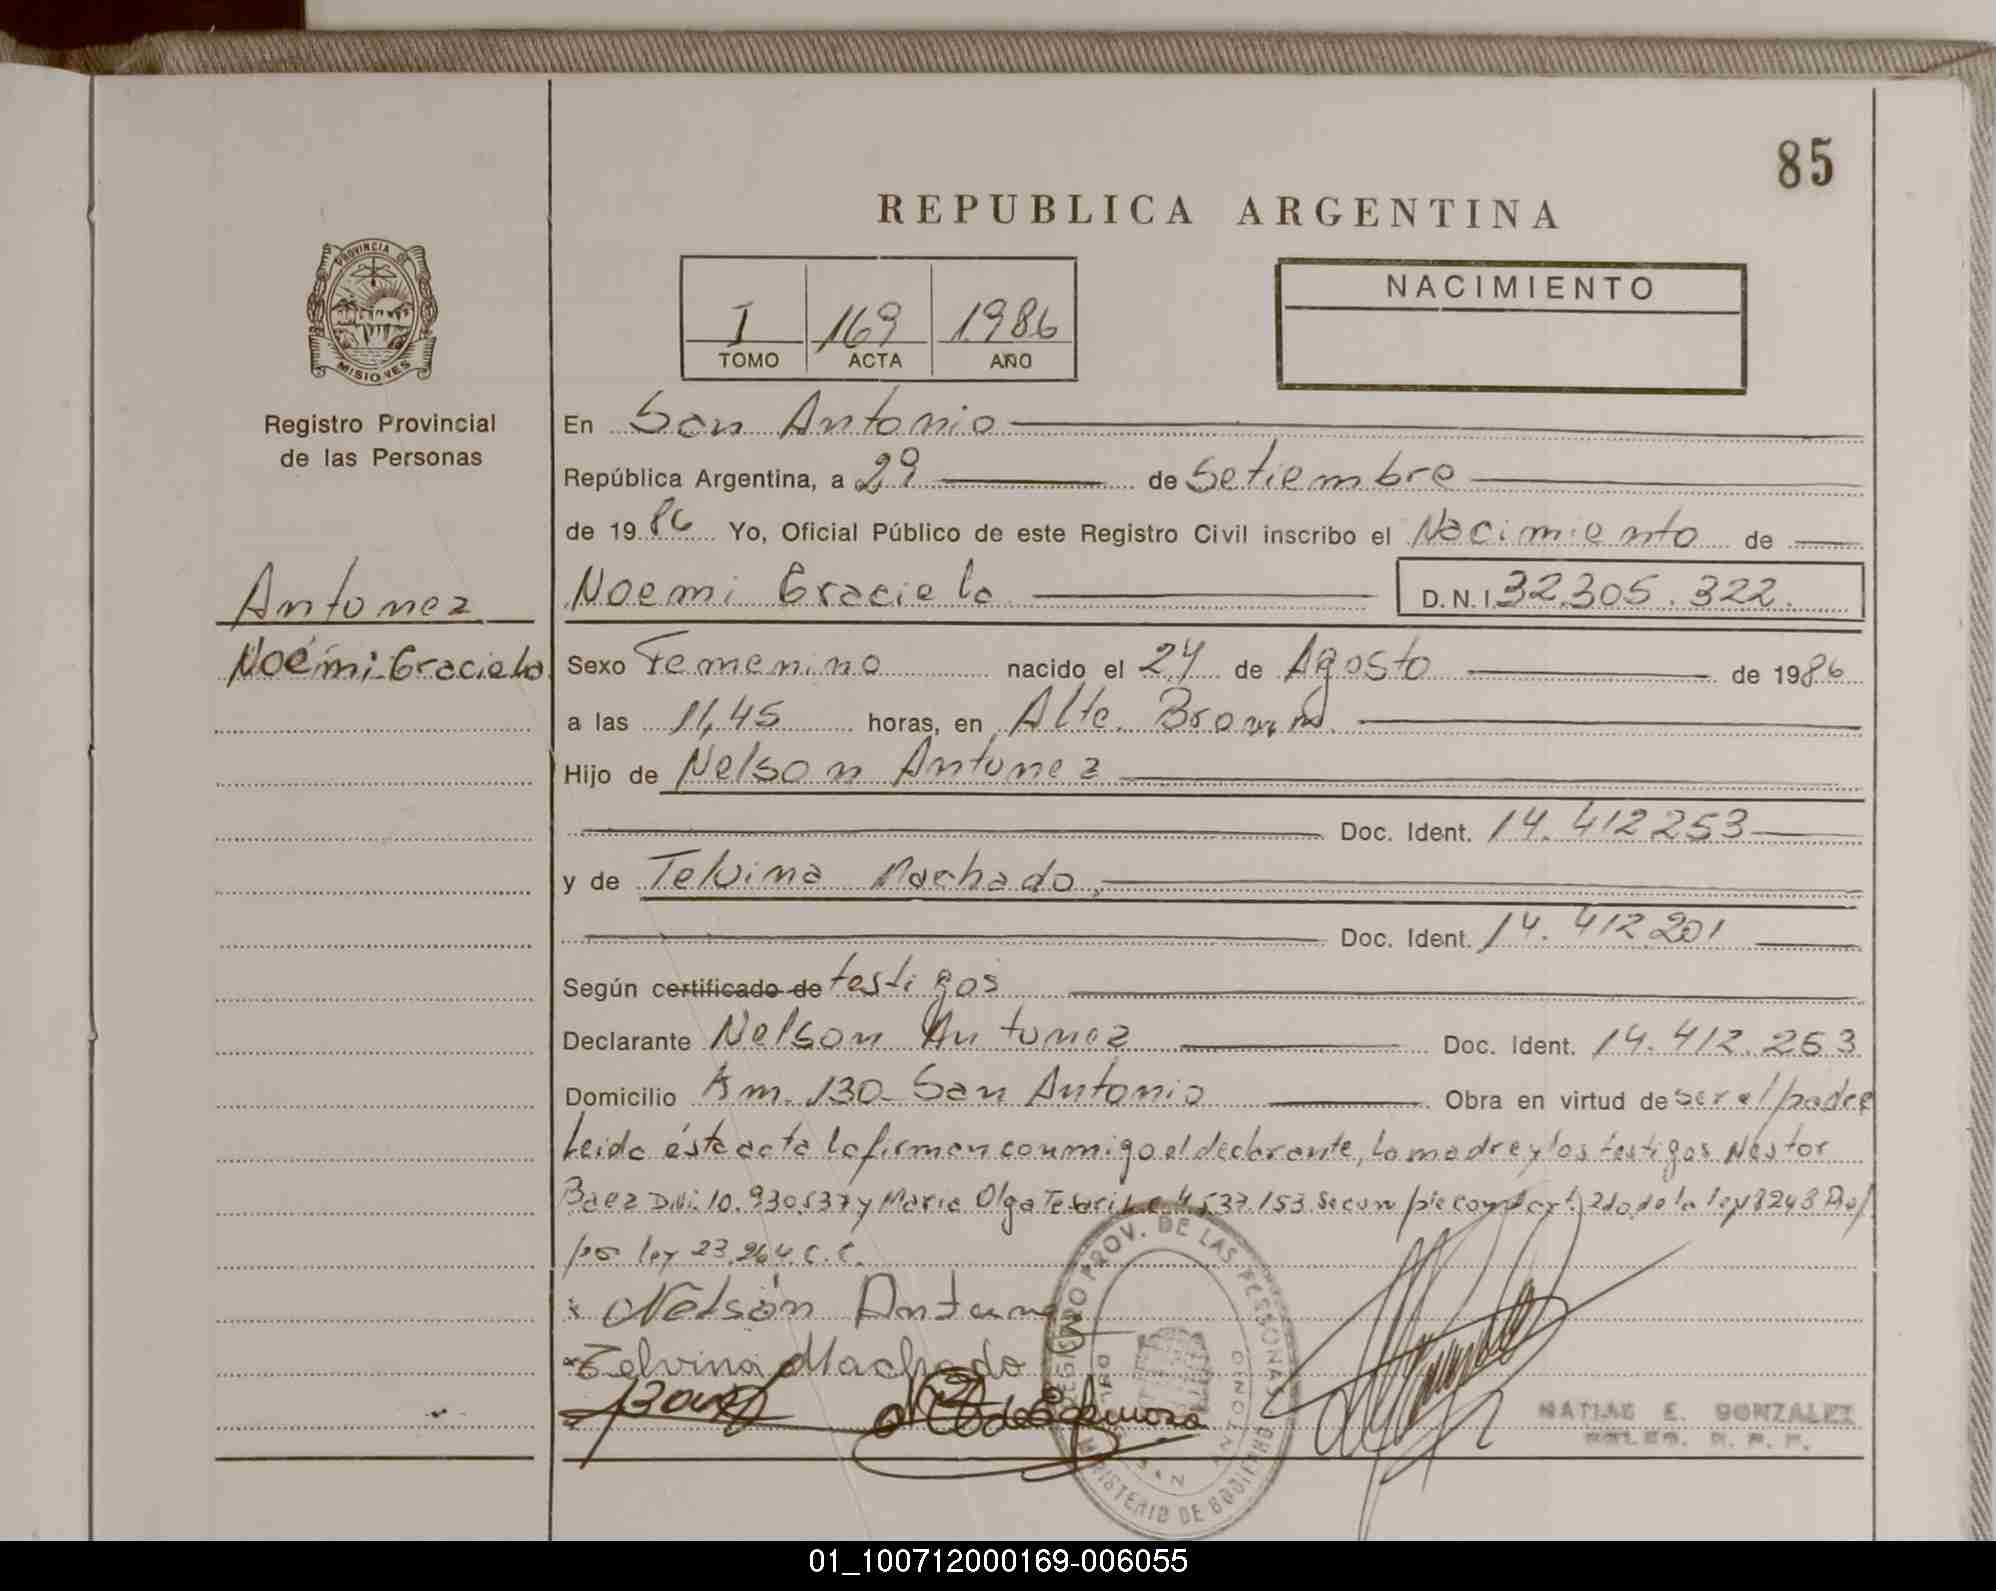 85
REPUBLICA ARGENTINA
PROVINCIA DE
MISIONES
I 169 1986
TOMO ACTA AÑO
NACIMIENTO
Registro Provincial
de las Personas
Antunez
Noemi Graciela
En San Antonio
República Argentina, a 29 de Setiembre
de 1986 Yo, Oficial Público de este Registro Civil inscribo el Nacimiento de
Noemi Graciela D.N.I. 32.305.322.
Sexo Femenino nacido el 24 de Agosto de 1986
a las 11,45 horas, en Alte. Brown
Hijo de Nelson Antunez
Doc. Ident. 14.412253
y de Telvina Machado,
Doc. Ident. 14.412.201
Según certificado de testigos
Declarante Nelson Antunez Doc. Ident. 14.412.253
Domicilio Km. 130 San Antonio Obra en virtud de ser el padre
Leida ésta acta la firman conmigo el declarante, la madre y los testigos Nestor
Baez DNi. 10.930.537 y Maria Olga 4.537.153 de la ley 8243
por ley 23.264.C.C.
Nelsón Antun
Telvina Machado
REGISTRO PROV. DE LAS PERSONAS
SAN ANTONIO
MINISTERIO DE
MATIAS E. GONZALEZ
01_100712000169-006055